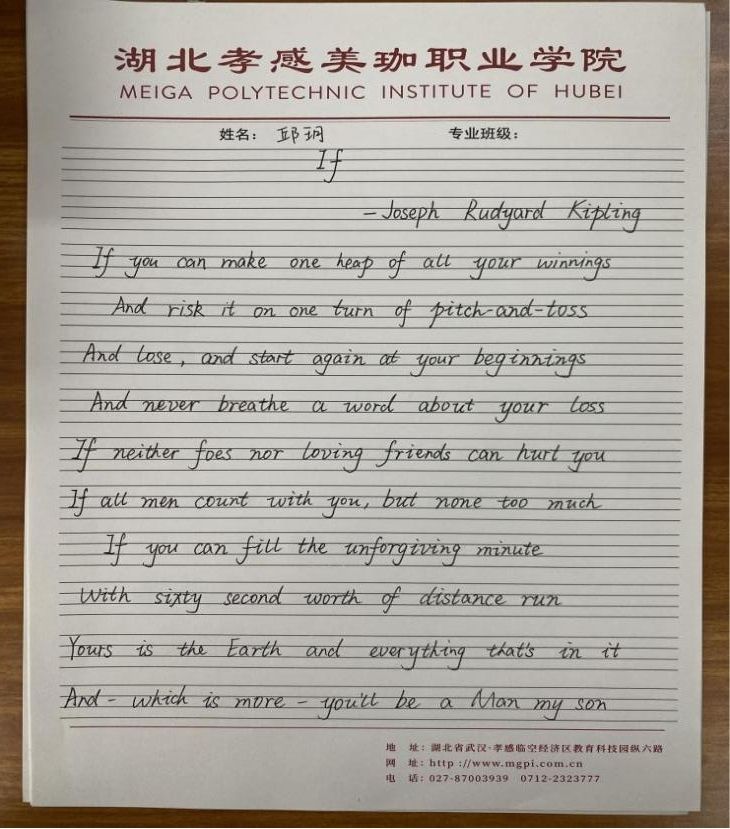 湖北孝感美珈职业学院
MEIGA POLYTECHNIC INSTITUTE OF HUBEI
姓名: 邱玥 专业班级:
If
- Joseph Rudyard Kipling
If you can make one heap of all your winnings
And risk it on one turn of pitch-and-toss
And lose, and start again at your beginnings
And never breathe a word about your loss
If neither foes nor loving friends can hurt you
If all men count with you, but none too much
If you can fill the unforgiving minute
With sixty second worth of distance run
Yours is the Earth and everything that's in it
And - which is more - you'll be a Man my son
地 址: 湖北省武汉·孝感临空经济区教育科技园纵六路
网 址: http://www.mgpi.com.cn
电 话: 027-87003939 0712-2323777